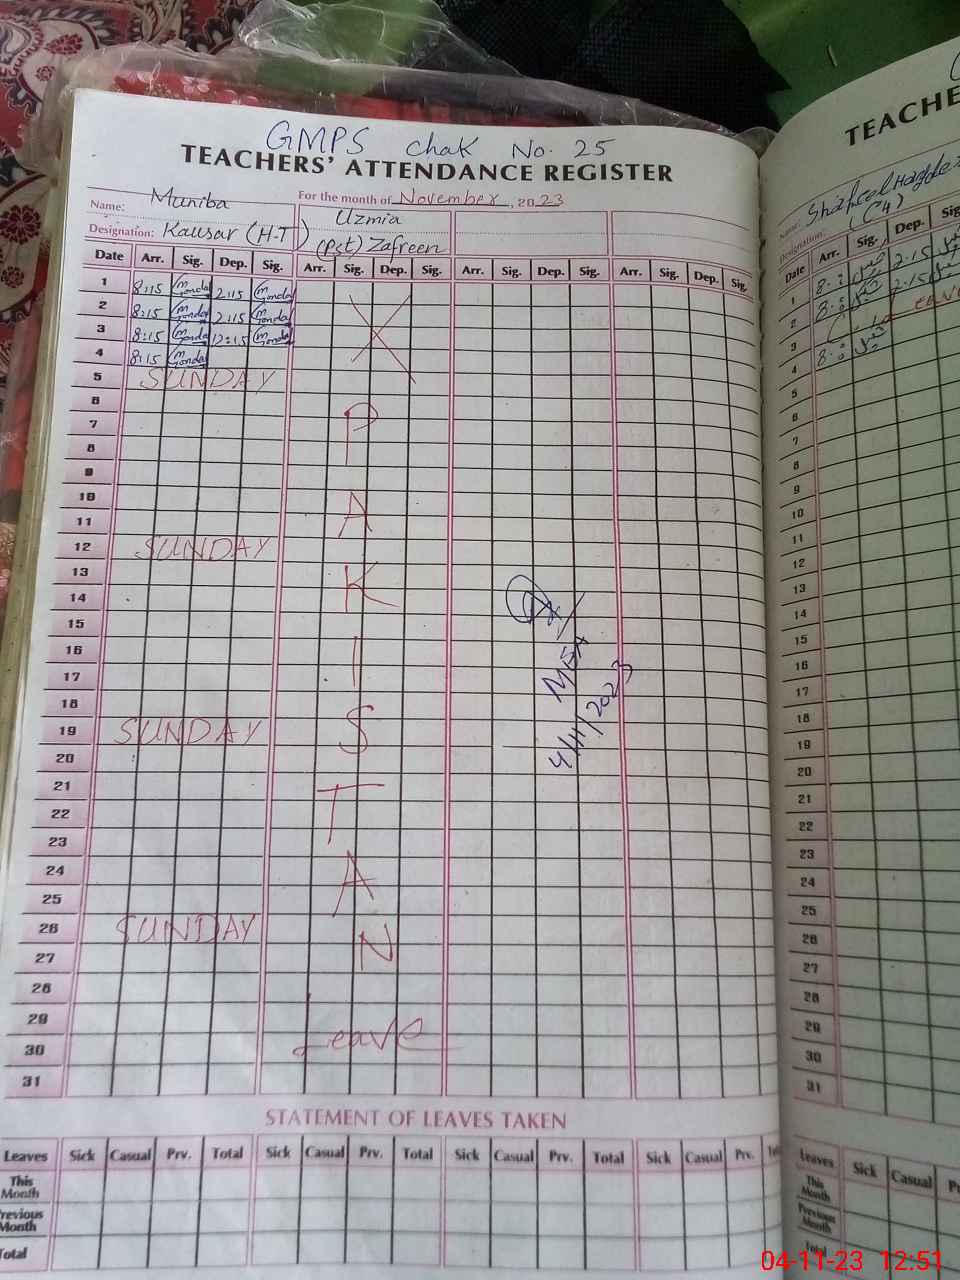 GMPS Chak No. 25
TEACHERS' ATTENDANCE REGISTER
For the month of November, 2023
Name: Muniba Uzmia
Designation: Kausar (H-T) (Pst) Zafreen
Date Arr. Sig. Dep. Sig. Arr. Sig. Dep. Sig. Arr. Sig. Dep. Sig. Arr. Sig. Dep. Sig.
1 8:15 2:15
2 8:15 2:15
3 8:15 12:15
4 8:15
5 SUNDAY
6
7 P
8
9
10
11 A
12 SUNDAY
13
14 K
15
16
17 I
18
19 SUNDAY S
20
21
22 T
23
24
25 A
26 SUNDAY
27 N
28
29
30 Leave
31
MEA
4/11/2023
STATEMENT OF LEAVES TAKEN
Leaves Sick Casual Prv. Total Sick Casual Prv. Total Sick Casual Prv. Total Sick Casual Prv.
This Month
Previous Month
Total
TEACHE
Name:
Designation: (C4)
Date Arr. Sig. Dep. Sig.
1 2.15
2 2.15
3
4
5
6
7
8
9
10
11
12
13
14
15
16
17
18
19
20
21
22
23
24
25
26
27
28
29
30
31
Leaves Sick Casual
This Month
Previous Month
Total
04-11-23 12:51